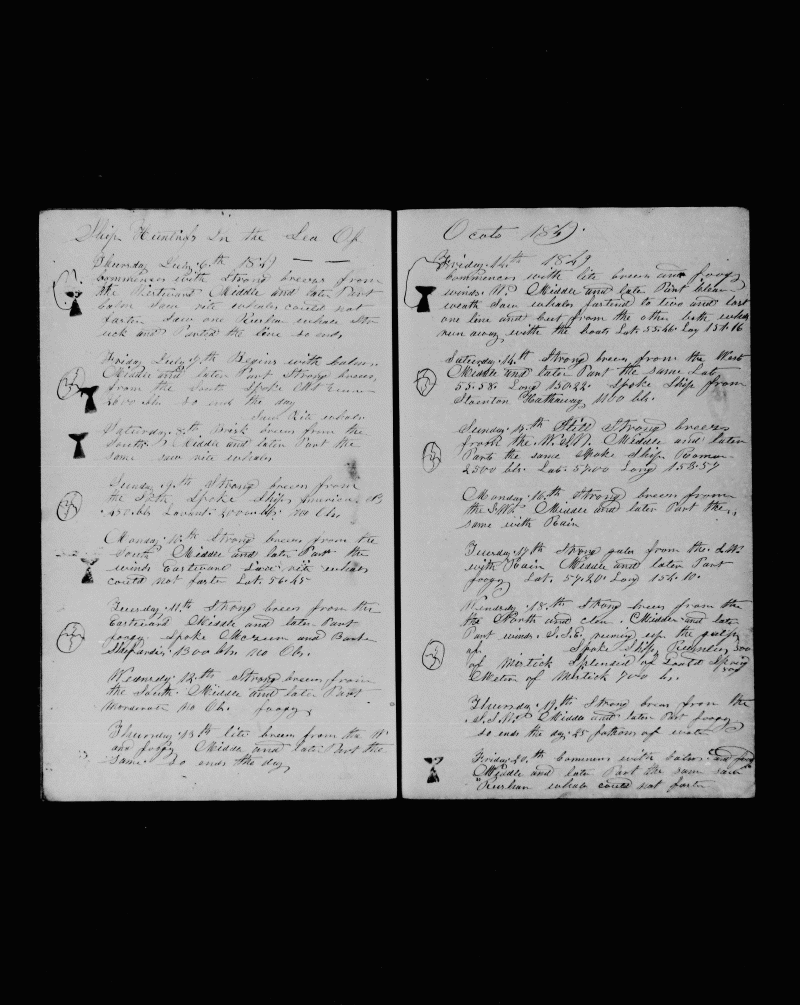 Ship Huntings In the Sea Of
Thursday July 6th 1849
Commences with Strong breeses from
the Eastward Middle and later Part
Calm Saw rite whales could not
fasten Saw one Rushan whale Str
uck and Parted the line So ends
Friday July 7th Begins with Calms
Middle and later Part Strong breeses
from the South Spoke
2600 bbs So ends the day
Saw Rite whales
Saturday 8th Brisk breeses from the
South Middle and later Part the
same saw rite whales
Sunday 9th Strong breeses from
the Spoke Ship America
450 bbs no Obs
Monday 10th Strong breeses from the
South Middle and later Part the
winds Eastward Saw rite whales
could not fasten Lat 56.45
Tuesday 11th Strong breses from the
Eastward Middle and later Part
foogy Spoke and Bark
Shepardis 1300 bbs no Obs.
Wensday 12th Strong breeses from
the South Middle and later Part
moderate no Obs foogy
Thursday 13th lite breeses from the W
and foogy Middle and later Part the
same So ends the day
Ocots 1849
Friday 14th 1849
Commences with lite breeses and foogy
winds W. Middle and later Part
weath Saw whales fastend to two and lost
one line and cut from the other both whales
run away with the boats Lat 55.46 Log 151.16
Saturday 14th Strong breeses from the West
Middle and later Part the same Lat
55.58 Long 150.22 Spoke Ship from
Stonnton Hathaway 1100 bbs.
Sunday 15th Still Strong breeses
from the Middle and later
Parts the same Spoke Ship Roman
2500 bbs Lat 57.00 Long 158.57
Monday 16th Strong breeses from
the S.W. Middle and later Part the
same with Rain
Tuesday 17th Strong gales from the
with Rain Middle and later Part
foogy Lat. 57.20 Long 154.10.
Wensday 18th Strong breses from the
the North and clear Middle and later
Part winds S.S.E. runing up the gulf
of Spoke Ship 300
of Mistick Splendid of
Meteor of Mistick 700 bs.
Thursday 19th Strong breses from the
Middle and later Part foogy
So ends the day 25 fathoms of water
Friday 20th Commences with Calms and foogy
Middle and later Part the same saw
Rushan whale could not fasten